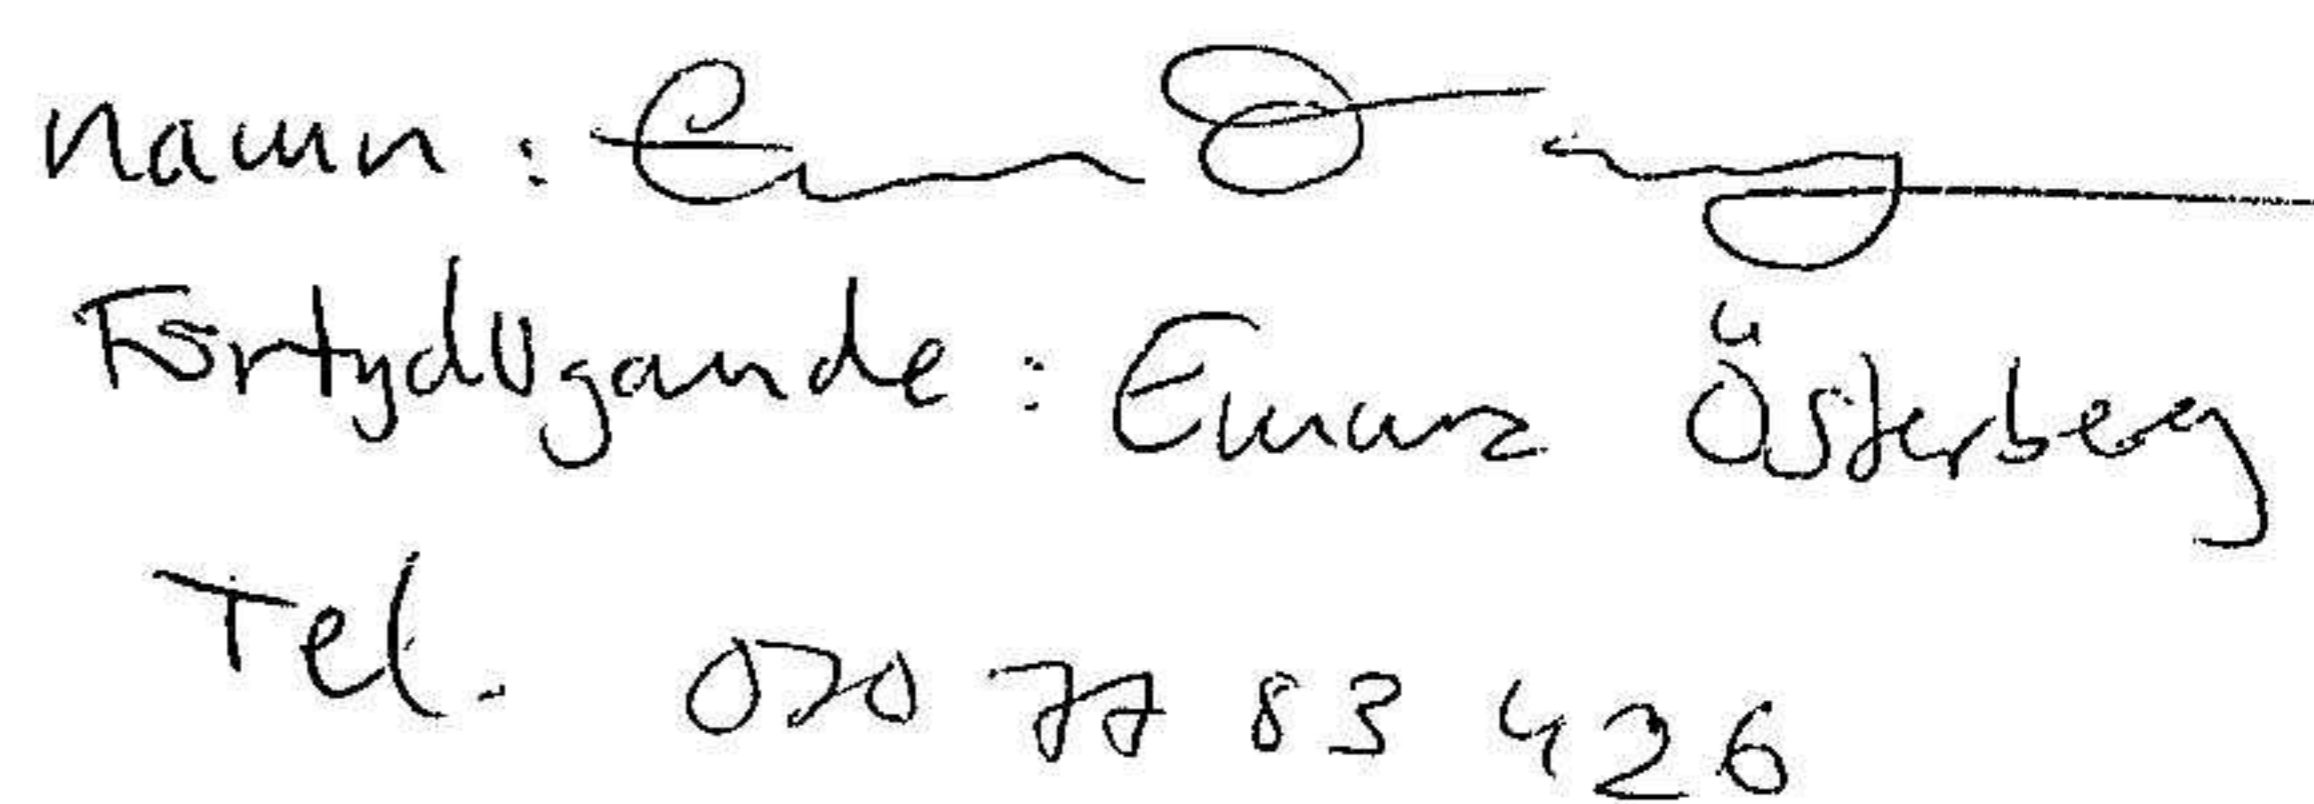 Namn:
Förtydligande: Emma Österberg
Tel. 070 77 83 426